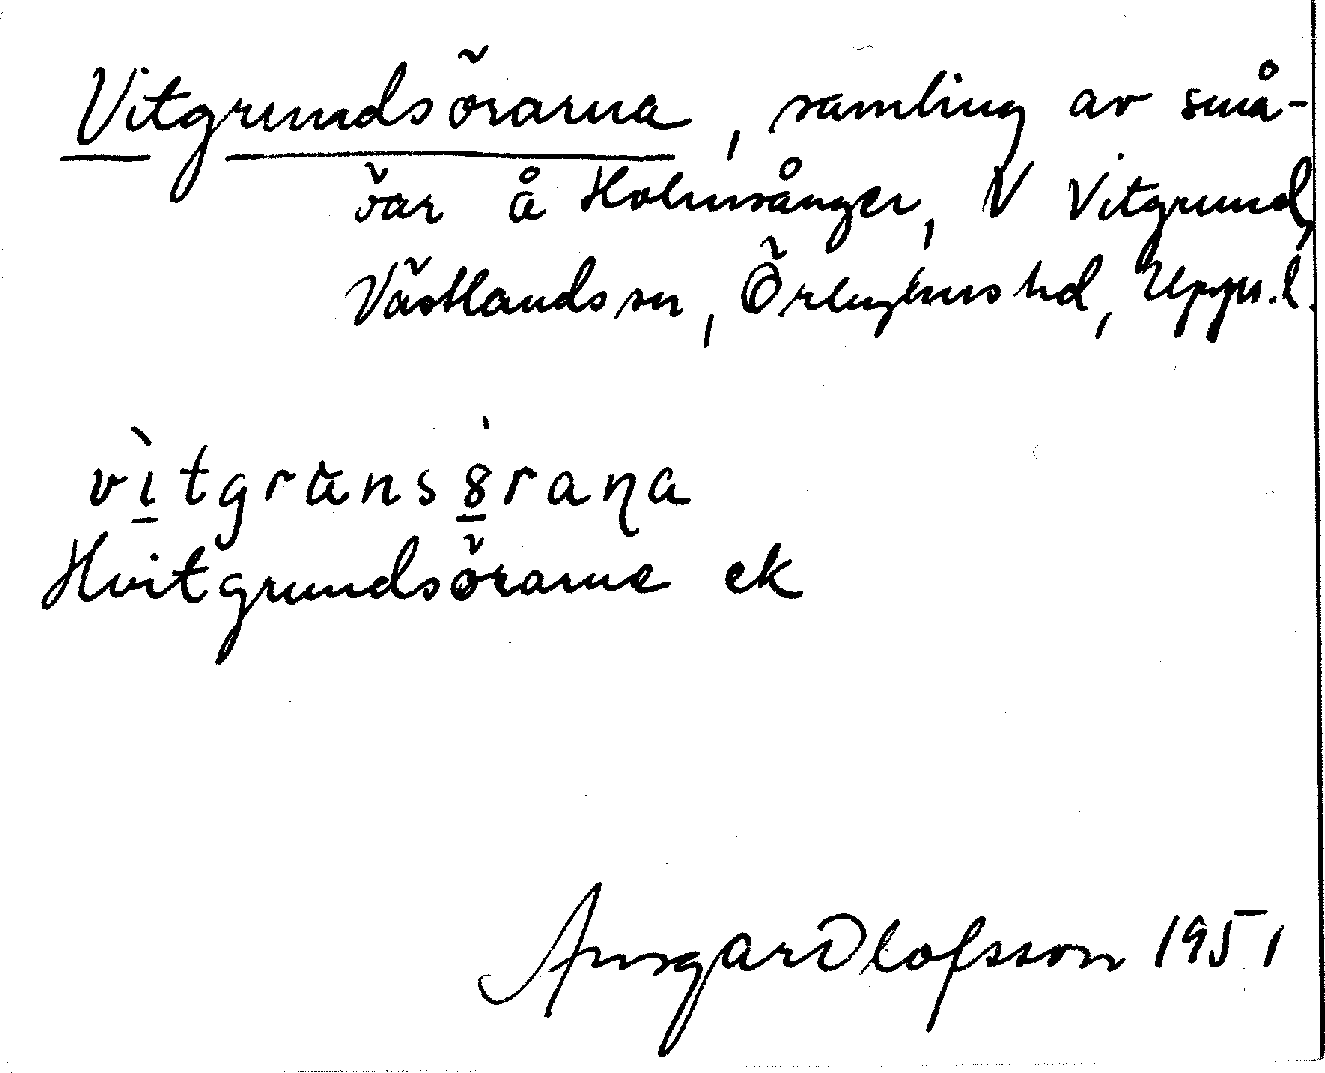 Vitgrundsörarna, samling av små-
öar å Holmsånger, V Vitgrund,
Västlands sn, Örbyhus hd, Upps.l.
vìtgrans8raɳa
Hvitgrundsörarne ek
Ansgar Olofsson 1951